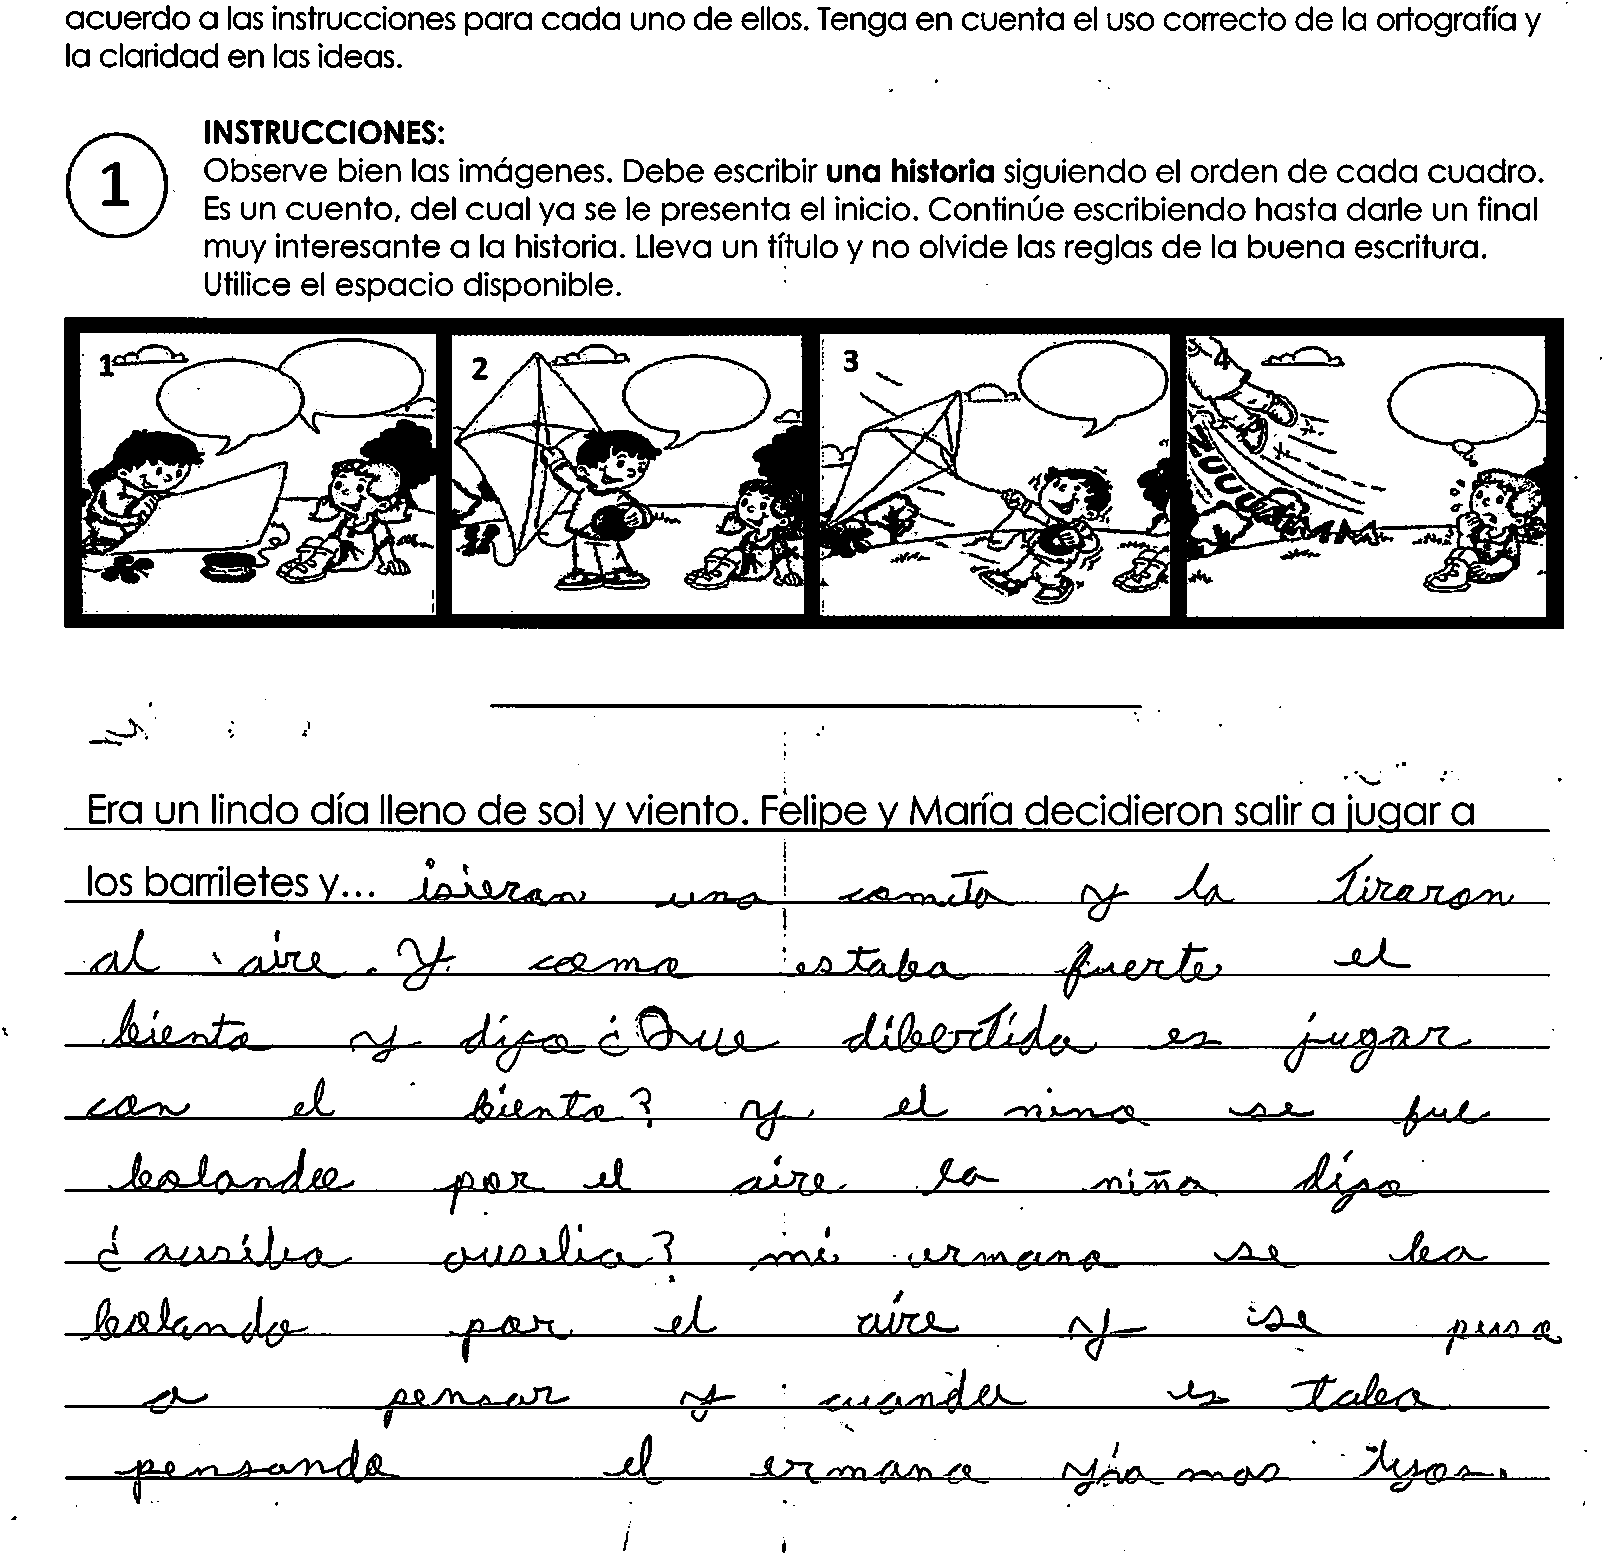 acuerdo a las instrucciones para cada uno de ellos. Tenga en cuenta el uso correcto de la ortografía y
la claridad en las ideas.
1
INSTRUCCIONES:
Observe bien las imágenes. Debe escribir una historia siguiendo el orden de cada cuadro.
Es un cuento, del cual ya se le presenta el inicio. Continúe escribiendo hasta darle un final
muy interesante a la historia. Lleva un título y no olvide las reglas de la buena escritura.
Utilice el espacio disponible.
1 2 3 4
ZUUUUMMM
Era un lindo día lleno de sol y viento. Felipe y María decidieron salir a jugar a
los barriletes y... isieran una comita y la tiraron
al aire. Y como estaba fuerte el
biento y dijo ¿Que dibertido es jugar
con el biento? y el nino se fue
bolando por el aire la niña dijo
¿ausilio ausilio? mi ermano se ba
bolando por el aire y se puso
a pensar y cuando es taba
pensando el ermano